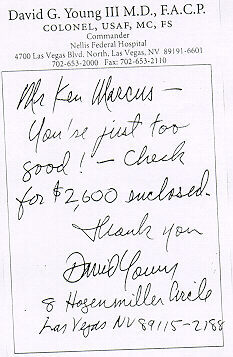 David G. Young III M.D., F.A.C.P.
COLONEL, USAF, MC, FS
Commander
Nellis Federal Hospital
4700 Las Vegas Blvd. North, Las Vegas, NV 89191-6601
702-653-2000 Fax: 702-653-2110
Mr Ken Marcus —
You're just too
good! — Check
for $2,600 enclosed.
Thank you
David Young
8 Hozenmiller Circle
Las Vegas NV 89115-2188